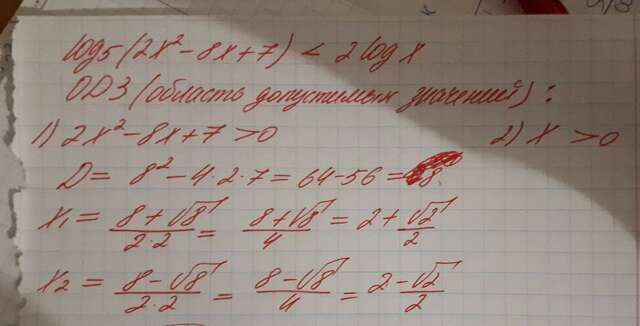 log5(2x² - 8x + 7) < 2 log x
ОДЗ (область допустимых значений):
1) 2x² - 8x + 7 > 0 2) x > 0
D = 8² - 4·2·7 = 64 - 56 = 8
x1 = (8 + √8)/(2·2) = (8 + √8)/4 = 2 + √2/2
x2 = (8 - √8)/(2·2) = (8 - √8)/4 = (2 - √2)/2